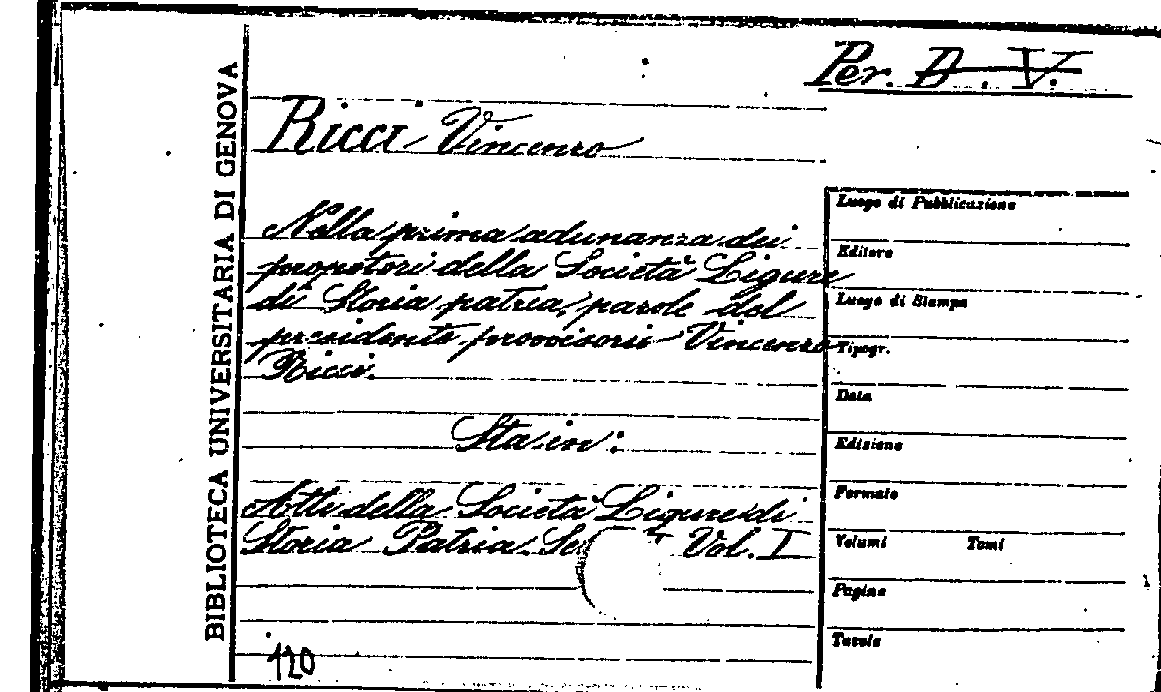 Per. D. V.
Ricci Vincenzo
Nella prima adunanza dei
propotori della Società Ligure
di Storia patria, parole del
presidente provvisorio Vincenzo
Ricci.
Sta in:
Atti della Società Ligure di
Storia Patria. Vol. I
120
BIBLIOTECA UNIVERSITARIA DI GENOVA
Luogo di Pubblicazione
Editore
Luogo di Stampa
Tipogr.
Data
Edizione
Formato
Volumi Tomi
Pagine
Tavole